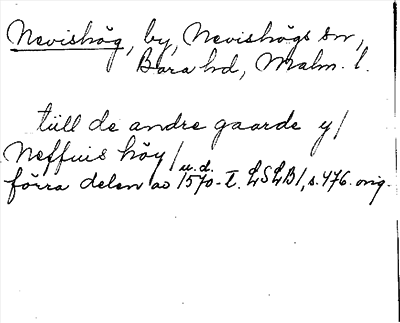 Nevishög, by, Nevishögs sn,
Bara hd, Malm. l.
till de andre gaarde y/
Neffuis höy/ u.d.
förra delen av 1570-t. LSLB1, s. 476. orig.